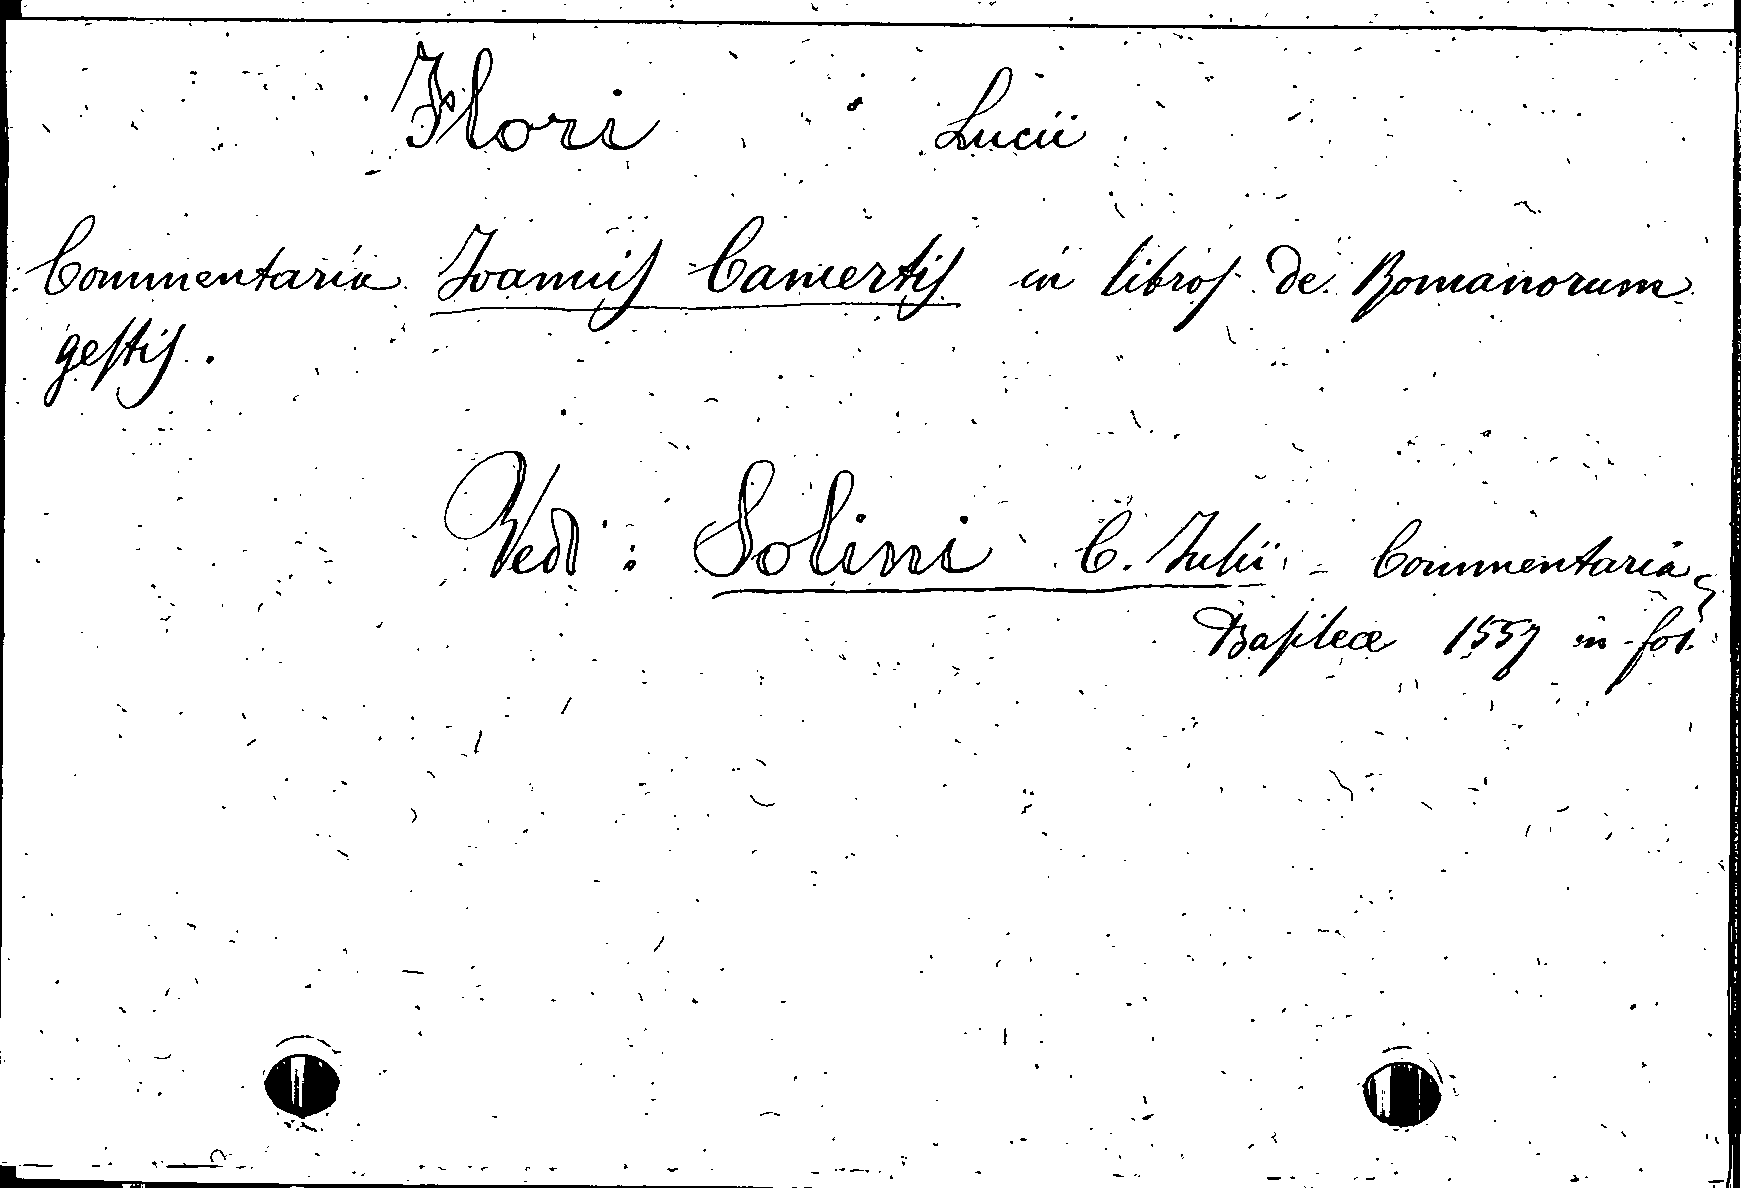 Flori Lucii
Commentaria Ioannis Camertis in libros de Romanorum
gestis.
Vedi: Solini C. Julii - Commentaria,
Basileae 1557 in-fol.